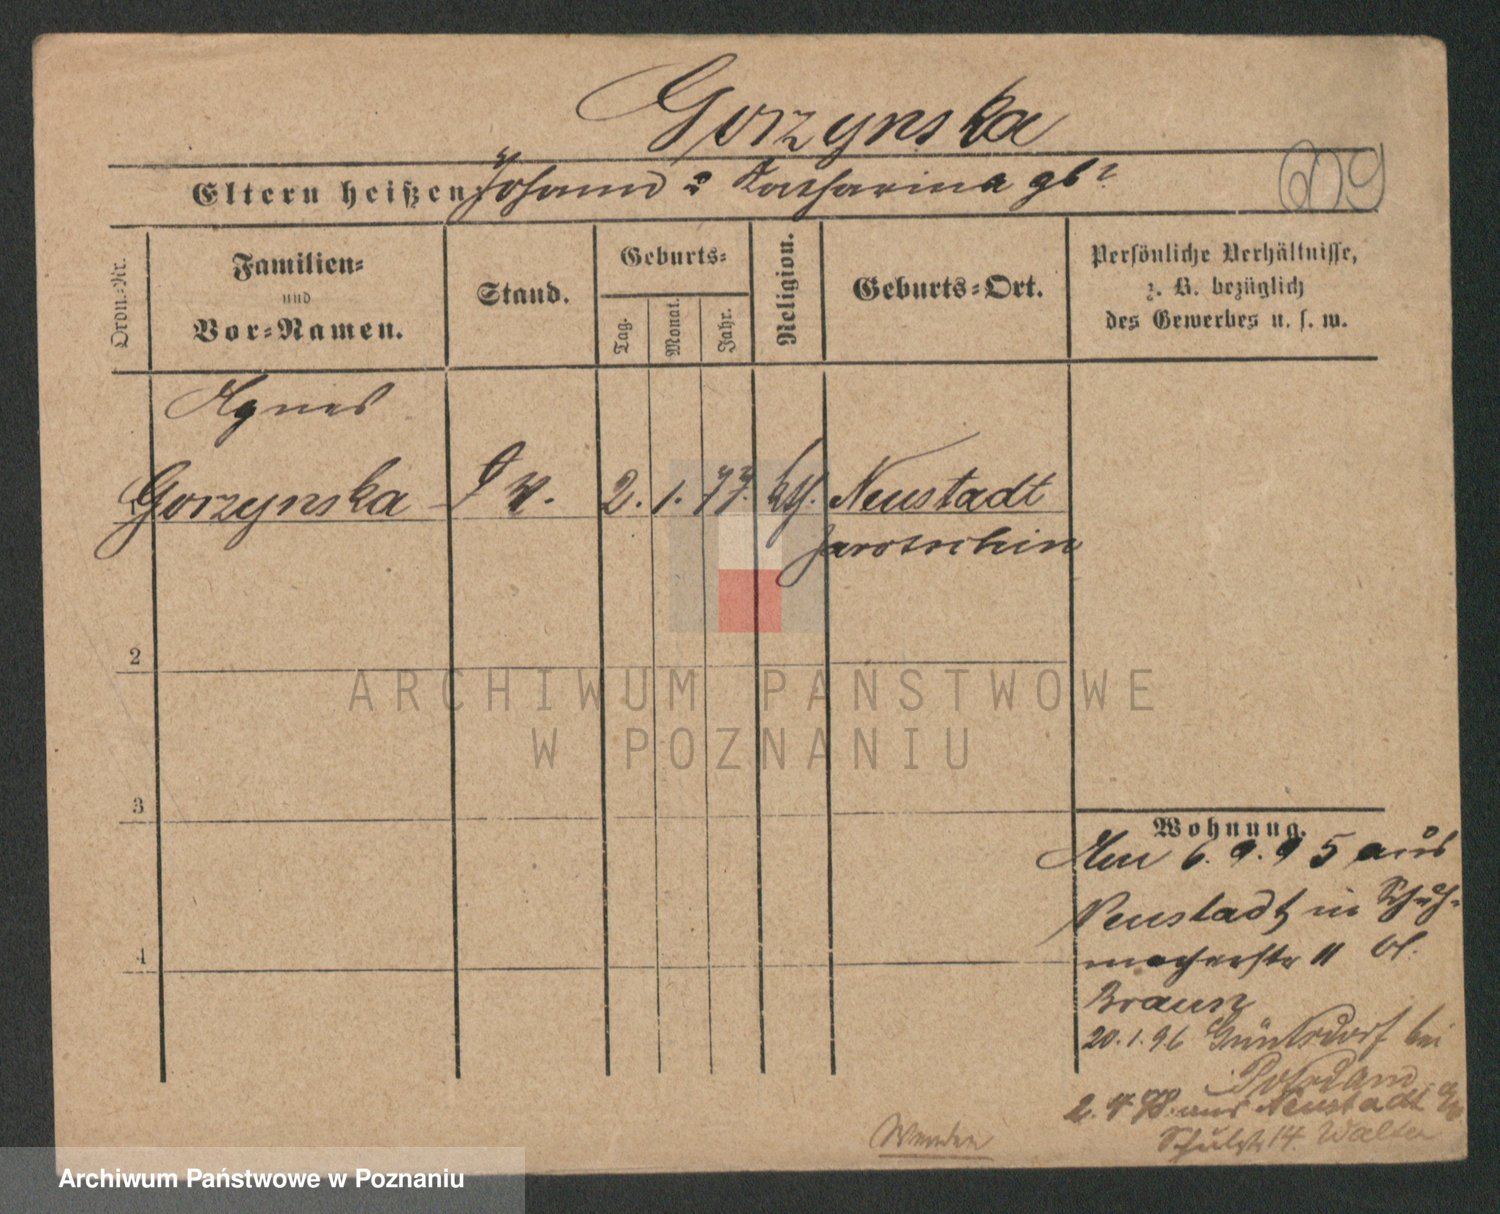 Gorzynska
Eltern heißen Johann & Katharina gb?
609
Ordn.-Nr.
Familien-
und
Vor-Namen.
Stand.
Geburts-
Tag.
Monat.
Jahr.
Religion.
Geburts-Ort.
Persönliche Verhältnisse,
z. B. bezüglich
des Gewerbes u. s. w.
Agnes
Gorzynska
2. 1. 77. kth. Neustadt
Jarotschin
2
3
4
ARCHIWUM PAŃSTWOWE
W POZNANIU
Wohnung.
6. 9. 95 aus
Neustadt in Schuh-
macherstr 11 bl.
Braun
20. 1. 96 bei
Potsdam
2. 4. 98. aus Neustadt
Schulstr 14. Walter
Archiwum Państwowe w Poznaniu